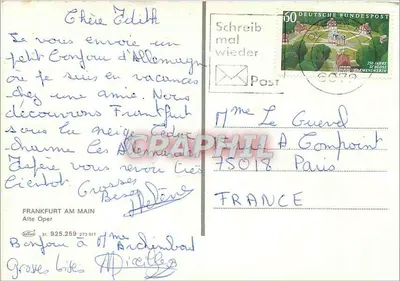 Chère Edith
Je vous envoie un
petit bonjour d'Allemagne
où je suis en vacances
chez une amie. Nous
découvrons Frankfurt
sous la neige
charme les Allemands
J'espère vous revoir très
bientôt Grosses
Bises
Hélène
FRANKFURT AM MAIN
Alte Oper
31. 925.259
Bonjour à Mme
Grosses bises
Schreib
mal
wieder
Post
60 DEUTSCHE BUNDESPOST
250 JAHRE
SCHLOSS
CLEMENSWERTH
GRAPHIL
Mme Le Guevel
Rue A Compoint
75018 Paris
FRANCE